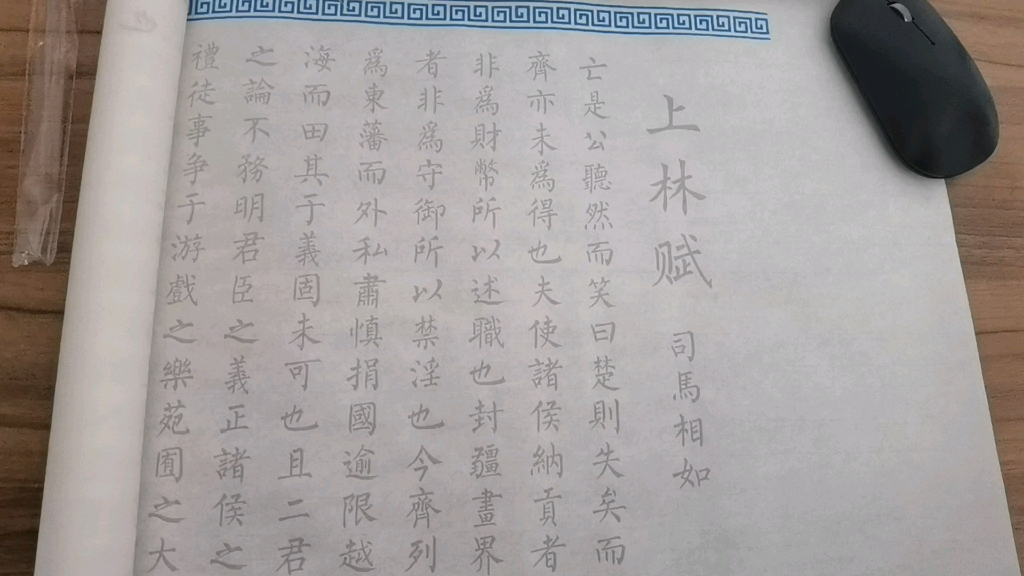 上林赋
司馬相如
亡是公聽然而笑曰楚則失矣而
齊亦未為得也夫使諸侯納貢者
非為財幣所以述職也封疆畫界
者非為守御所以禁淫也今齊列
為東藩而外私肅慎捐國逾限越
海而田其于義固未可也且二君
之論不務明君臣之義正諸侯之
禮徒事争于游戲之樂苑囿之大